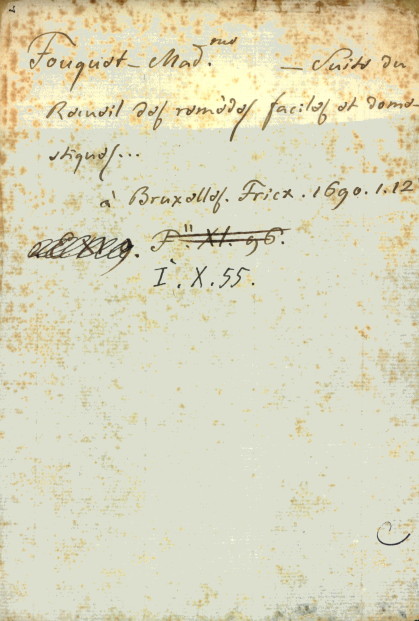 Fouquet – Mad.me — Suite du
Recueil des remèdes faciles et dome-
stiques...
à Bruxelles. Fricx. 1690. 1.12
P" XI. 96.
I`. X. 55.